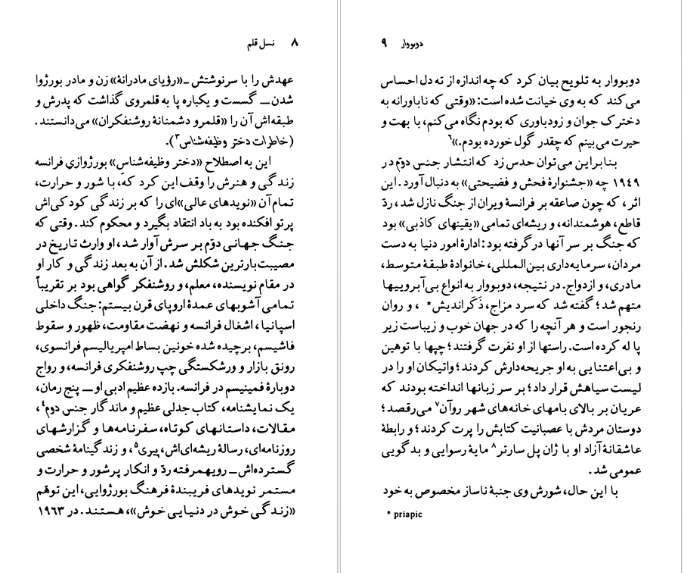 ۸ نسل قلم
عهدش را با سرنوشتش ــ «رؤیای مادرانهٔ» زن و مادر بورژوا
شدن ــ گسست و یکباره پا به قلمروی گذاشت که پدرش و
طبقه‌اش آن را «قلمرو دشمنانهٔ روشنفکران» می‌دانستند.
(خاطرات دختر وظیفه‌شناس۳).
این به اصطلاح «دختر وظیفه‌شناسِ» بورژوازی فرانسه
زندگی و هنرش را وقف این کرد که، با شور و حرارت،
تمام آن «نویدهای عالی»ای را که بر زندگی کودکی‌اش
پرتو افکنده بود به باد انتقاد بگیرد و محکوم کند. وقتی که
جنگ جهانی دوّم بر سرش آوار شد، او وارث تاریخ در
مصیبت‌بارترین شکلش شد. از آن به بعد زندگی و کار او
در مقام نویسنده، معلم، و روشنفکر گواهی بود بر تقریباً
تمامی آشوبهای عمدهٔ اروپای قرن بیستم: جنگ داخلی
اسپانیا، اشغال فرانسه و نهضت مقاومت، ظهور و سقوط
فاشیسم، برچیده شده خونین بساط امپریالیسم فرانسوی،
رونق بازار و ورشکستگی چپ روشنفکری فرانسه، و رواج
دوبارهٔ فمینیسم در فرانسه. بازده عظیم ادبی او ــ پنج رمان،
یک نمایشنامه، کتاب جدلی عظیم و ماندگار جنس دوم۴،
مقالات، داستانهای کوتاه، سفرنامه‌ها و گزارشهای
روزنامه‌ای، رسالهٔ ریشه‌ای‌اش، پیری۵، و زندگینامهٔ شخصی
گسترده‌اش ــ رویهمرفته ردّ و انکار پرشور و حرارت و
مستمر نویدهای فریبندهٔ فرهنگ بورژوایی، این توهّم
«زندگی خوش در دنیایی خوش»، هستند. در ۱۹۶۳
دوبووار ۹
دوبووار به تلویح بیان کرد که چه اندازه از ته دل احساس
می‌کند که به وی خیانت شده است: «وقتی که ناباورانه به
دخترک جوان و زودباوری که بودم نگاه می‌کنم، با بهت و
حیرت می‌بینم که چقدر گول خورده بودم.»۶
بنابراین می‌توان حدس زد که انتشار جنس دوّم در
۱۹۴۹ چه «جشنوارهٔ فحش و فضیحتی» به دنبال آورد. این
اثر، که چون صاعقه بر فرانسهٔ ویران از جنگ نازل شد، ردّ
قاطع، هوشمندانه، و ریشه‌ای تمامی «یقینهای کاذبی» بود
که جنگ بر سر آنها درگرفته بود: ادارهٔ امور دنیا به دست
مردان، سرمایه‌داری بین‌المللی، خانوادهٔ طبقهٔ متوسط،
مادری، و ازدواج. در نتیجه، دوبووار به انواع بی‌آبروییها
متهم شد؛ گفته شد که سرد مزاج، ذَکَراندیش*، و روان
رنجور است و هر آنچه را که در جهان خوب و زیباست زیر
پا له کرده است. راستها از او نفرت گرفتند؛ چپها با توهین
و بی‌اعتنایی به او جریحه‌دارش کردند؛ واتیکان او را در
لیست سیاهش قرار داد؛ بر سر زبانها انداخته بودند که
عریان بر بالای بامهای خانه‌های شهر روآن۷ می‌رقصد؛
دوستان مردش با عصبانیت کتابش را پرت کردند؛ و رابطهٔ
عاشقانهٔ آزاد او با ژان پل سارتر۸ مایهٔ رسوایی و بدگویی
عمومی شد.
با این حال، شورش وی جنبهٔ ناساز مخصوص به خود
* priapic